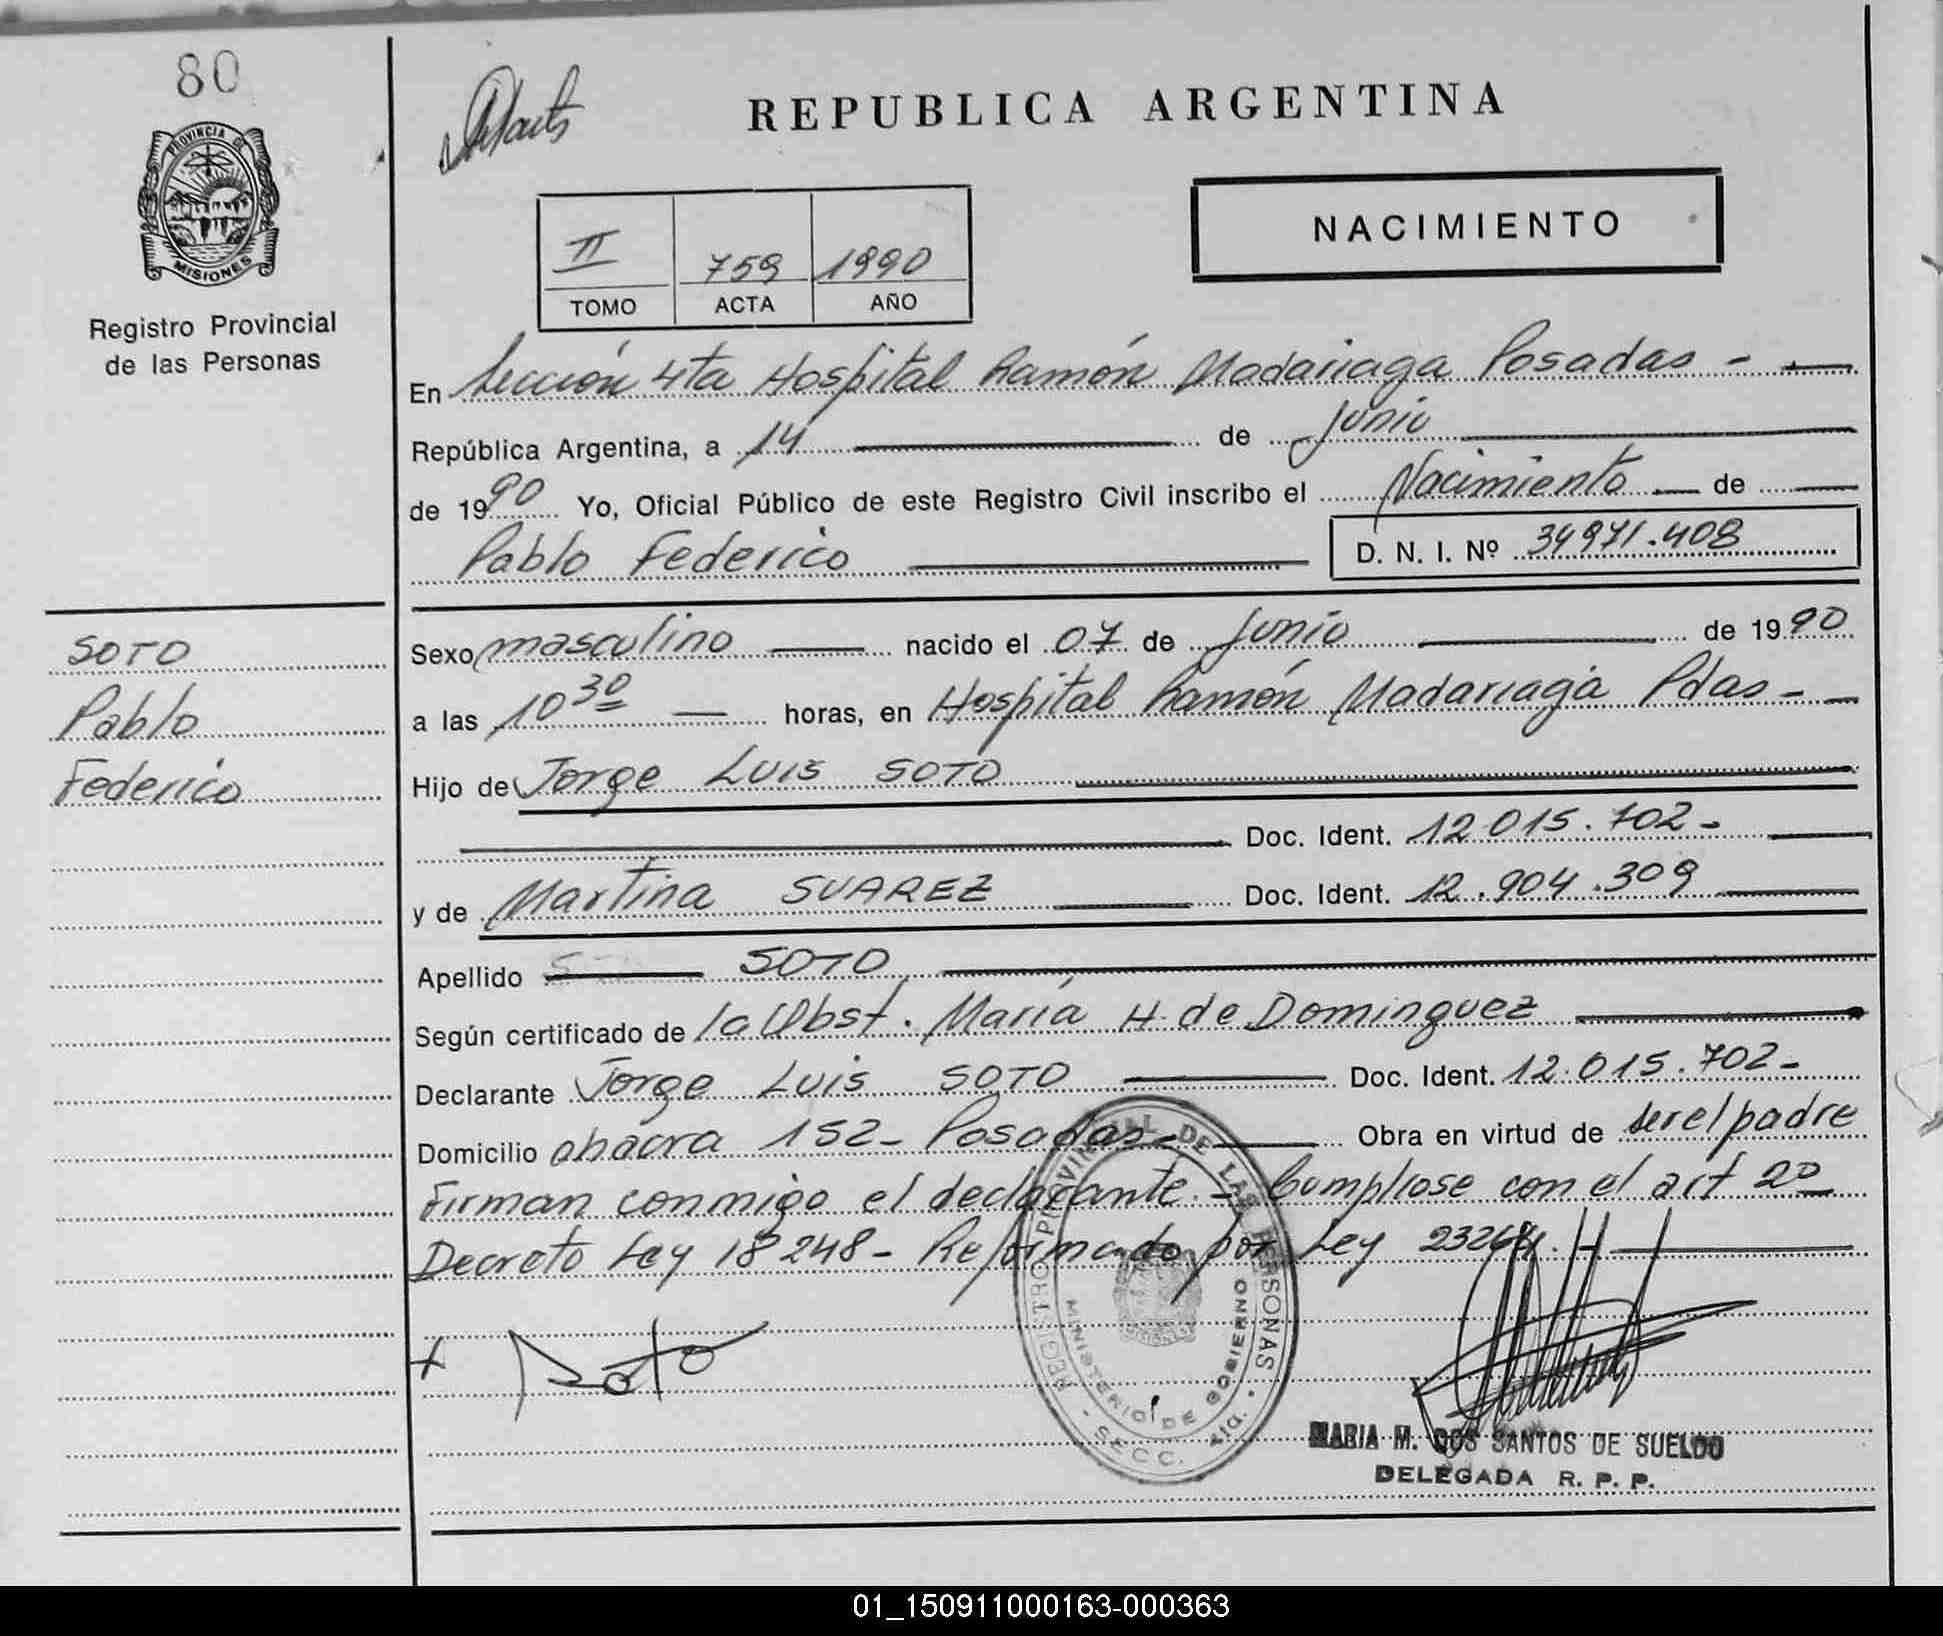 80
PROVINCIA DE
MISIONES
Registro Provincial
de las Personas
SOTO
Pablo
Federico
REPUBLICA ARGENTINA
NACIMIENTO
II 759 1990
TOMO ACTA AÑO
En Sección 4ta Hospital Ramón Madariaga Posadas -
República Argentina, a 14 de Junio
de 1990 Yo, Oficial Público de este Registro Civil inscribo el Nacimiento de
Pablo Federico D. N. I. Nº 34971.408
Sexo masculino nacido el 07 de Junio de 1990
a las 10 30 horas, en Hospital Ramón Madariaga Pdas -
Hijo de Jorge Luis SOTO
Doc. Ident. 12.015.702-
y de Martina SUAREZ Doc. Ident. 12.904.309
Apellido SOTO
Según certificado de la Obst. María H. de Dominguez
Declarante Jorge Luis SOTO Doc. Ident. 12.015.702-
Domicilio 152- Posadas- Obra en virtud de ser el padre
Firman conmigo el declarante.- Cumpliose con el art 2º
Decreto Ley 18248- Reformado por Ley
Soto
REGISTRO PROVINCIAL DE LAS PERSONAS
MINISTERIO DE GOBIERNO
SECC.
MARIA M. DOS SANTOS DE SUELDO
DELEGADA R. P. P.
01_150911000163-000363